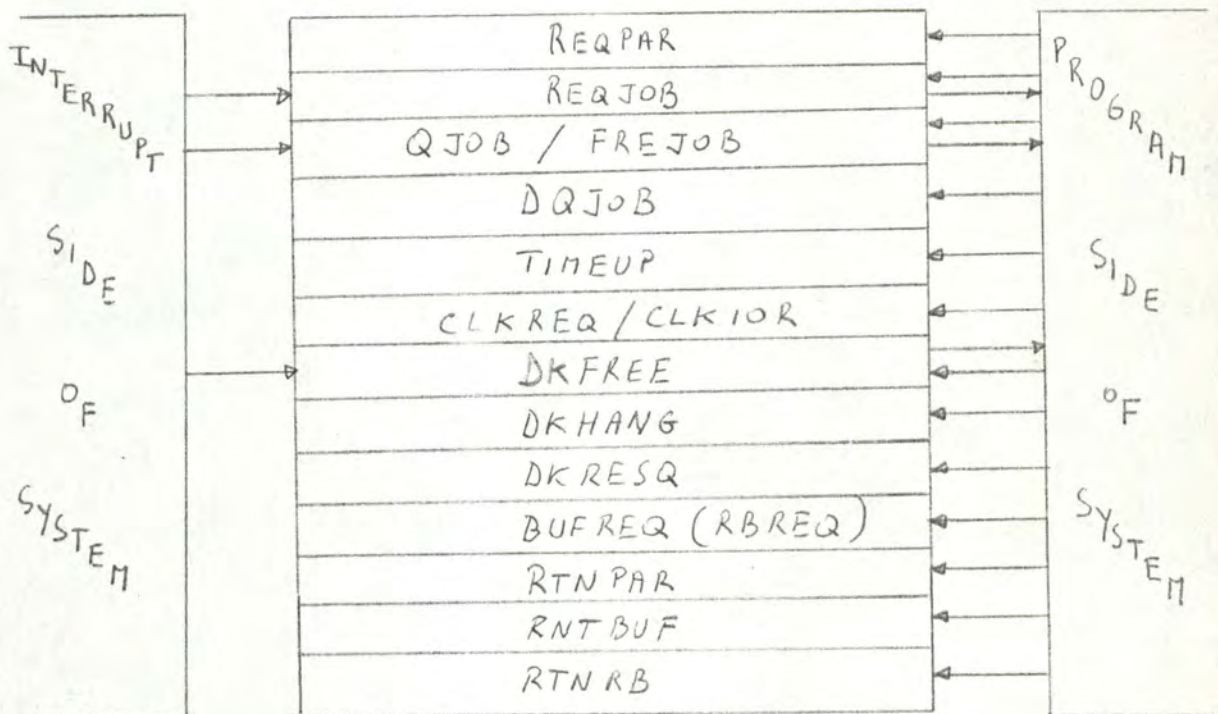 INTERRUPT
SIDE
OF
SYSTEM
REQPAR
REQJOB
QJOB / FREJOB
DQJOB
TIMEUP
CLKREQ / CLKIOR
DKFREE
DKHANG
DKRESQ
BUFREQ (RBREQ)
RTNPAR
RNTBUF
RTNRB
PROGRAM
SIDE
OF
SYSTEM